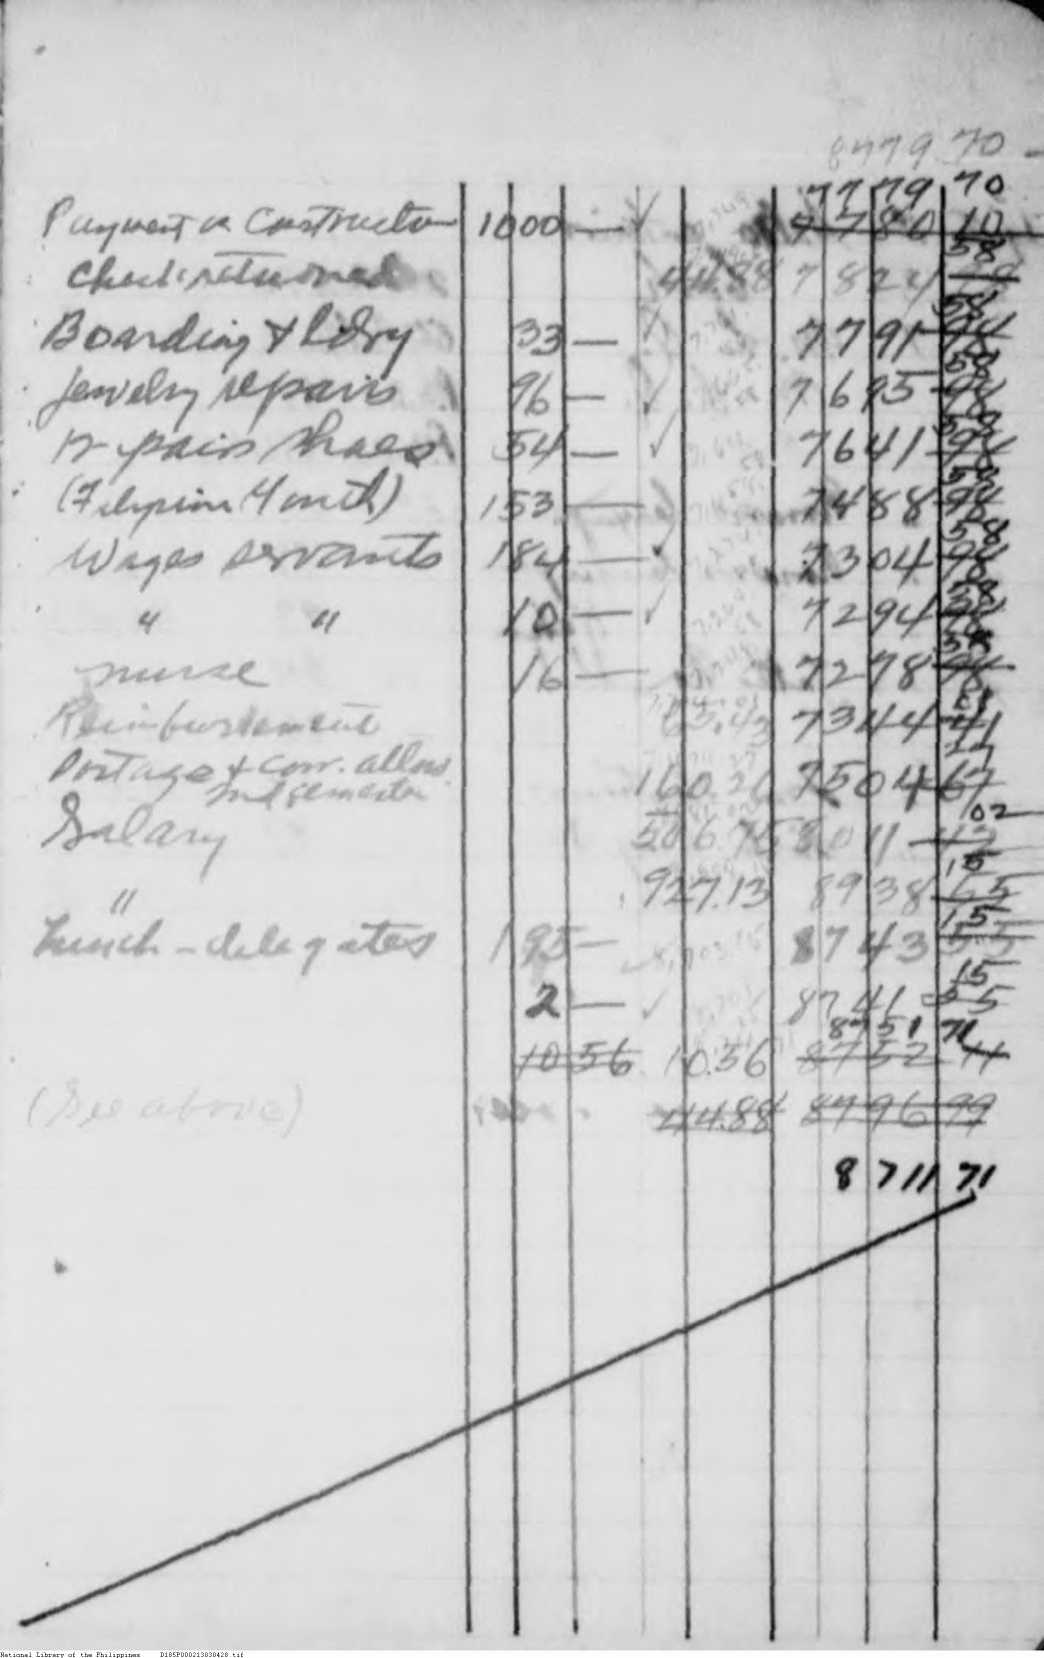 8779 70 —
7779 70
Payment on Construction 1000 — ✓ 7780 10
58
Check returned 44.88 7824
58
Boarding & Ldry 33 — ✓ 7791 94
58
Jewelry repairs 96 — ✓ 7695 98
58
12 pairs shoes 54 — ✓ 7641 98
58
(Filipino Youth) 153 — 7488 98
58
Wages servants 184 — ✓ 7304 98
58
" " 10 — ✓ 7294 98
58
nurse 16 — 7278 98
01
Reimbursement 65.43 7344 41
27
Postage & corr. allow. 160.26 7504 67
2nd semester
02
Salary 506.75 8011 42
15
" 927.13 8938 55
15
Lunch - delegates 195 — 8743 55
15
2 — ✓ 8741 55
8751 71
10 56 10.56 8752 11
(See above) 44.88 8796 99
8711 71
National Library of the Philippines D185P000213830428.tif